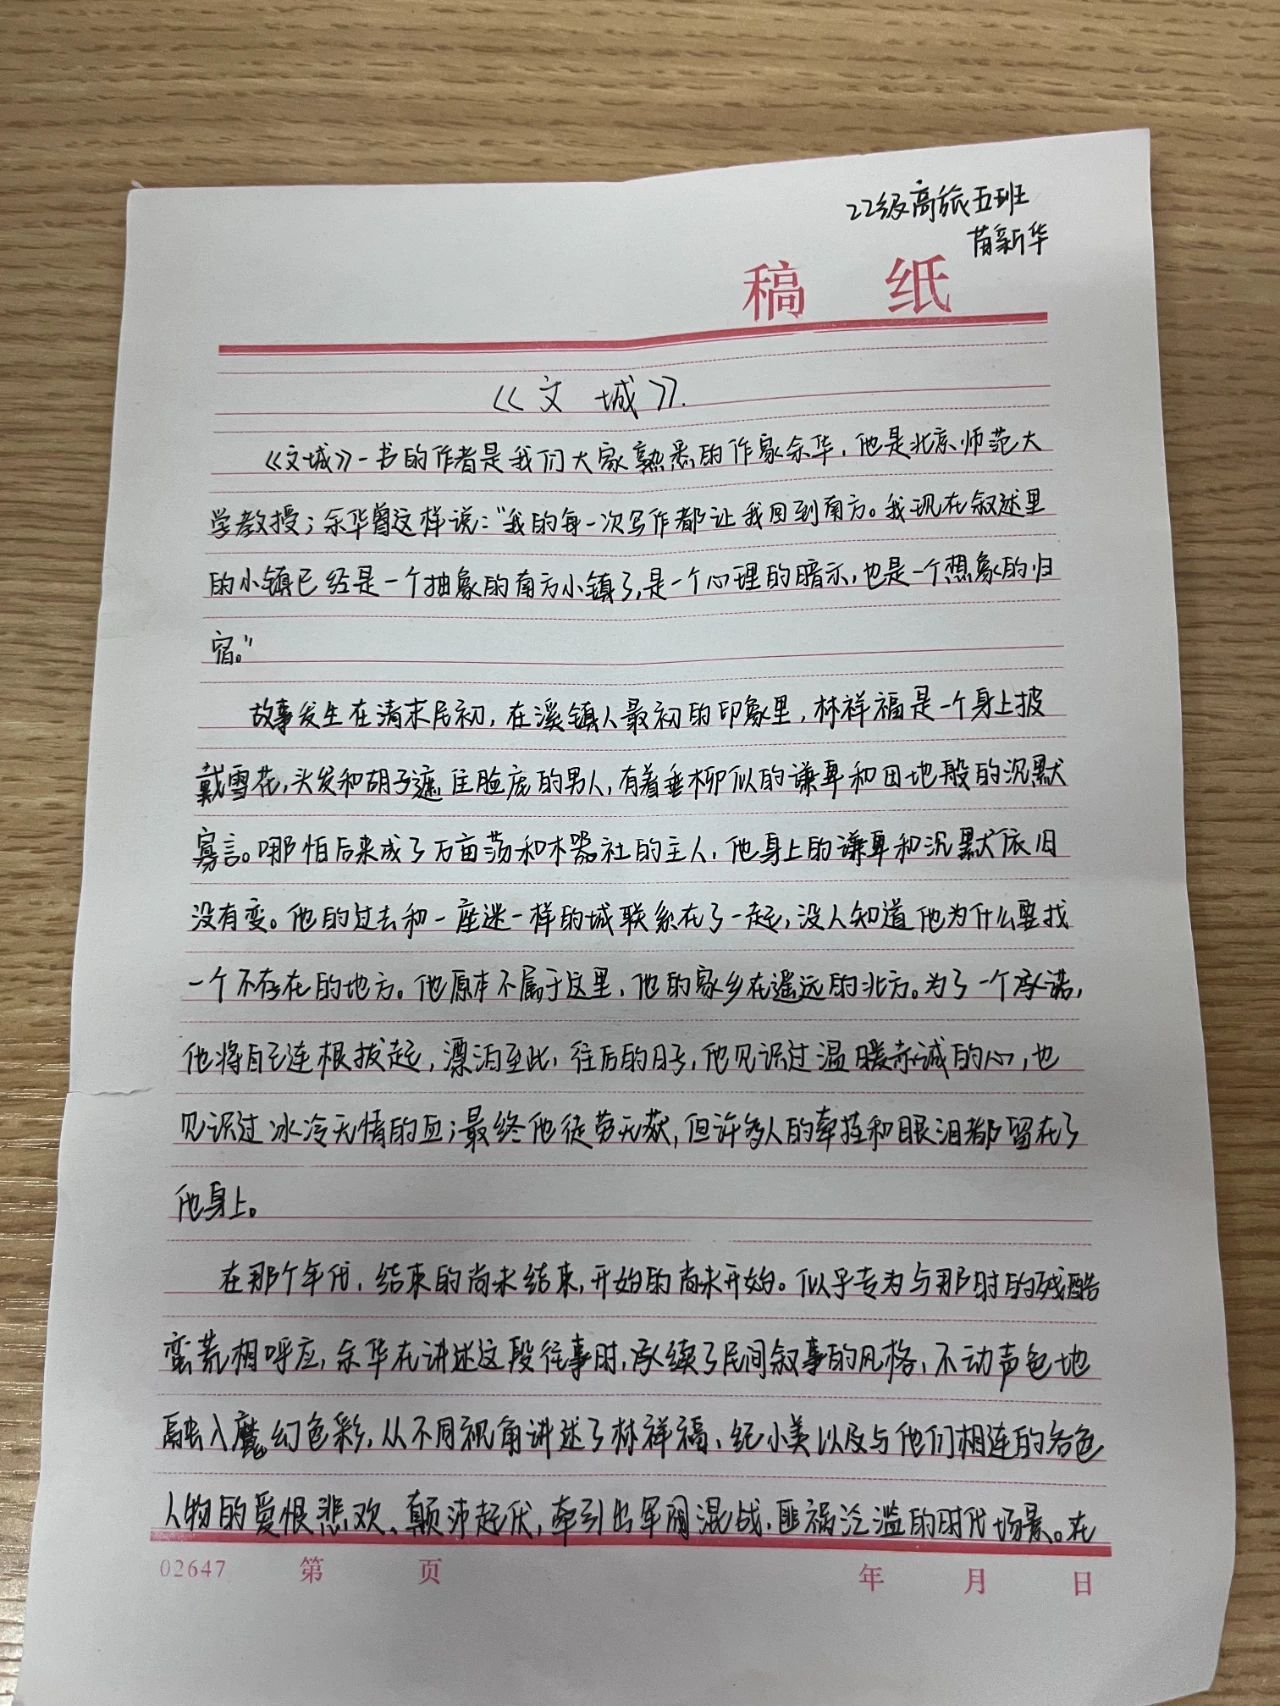 22级高旅五班
苗新华
稿 纸
《文城》.
《文城》一书的作者是我们大家熟悉的作家余华，他是北京师范大
学教授；余华曾这样说："我的每一次写作都让我回到南方。我现在叙述里
的小镇已经是一个抽象的南方小镇了，是一个心理的暗示，也是一个想象的归
宿。"
故事发生在清末民初，在溪镇人最初的印象里，林祥福是一个身上披
戴雪花，头发和胡子遮住脸庞的男人，有着垂柳似的谦卑和田地般的沉默
寡言。哪怕后来成了万亩荡和木器社的主人，他身上的谦卑和沉默依旧
没有变。他的过去和一座迷一样的城联系在了一起，没人知道他为什么要找
一个不存在的地方。他原本不属于这里，他的家乡在遥远的北方。为了一个承诺，
他将自己连根拔起，漂泊至此，往后的日子，他见识过温暖赤诚的心，也
见识过冰冷无情的血；最终他徒劳无获，但许多人的牵挂和眼泪都留在了
他身上。
在那个年代，结束的尚未结束，开始的尚未开始。似乎专为与那时的残酷
蛮荒相呼应，余华在讲述这段往事时，承续了民间叙事的风格，不动声色地
融入魔幻色彩，从不同视角讲述了林祥福、纪小美以及与他们相连的各色
人物的爱恨悲欢、颠沛起伏，牵引出军阀混战、匪祸泛滥的时代场景。在
02647 第 页 年 月 日